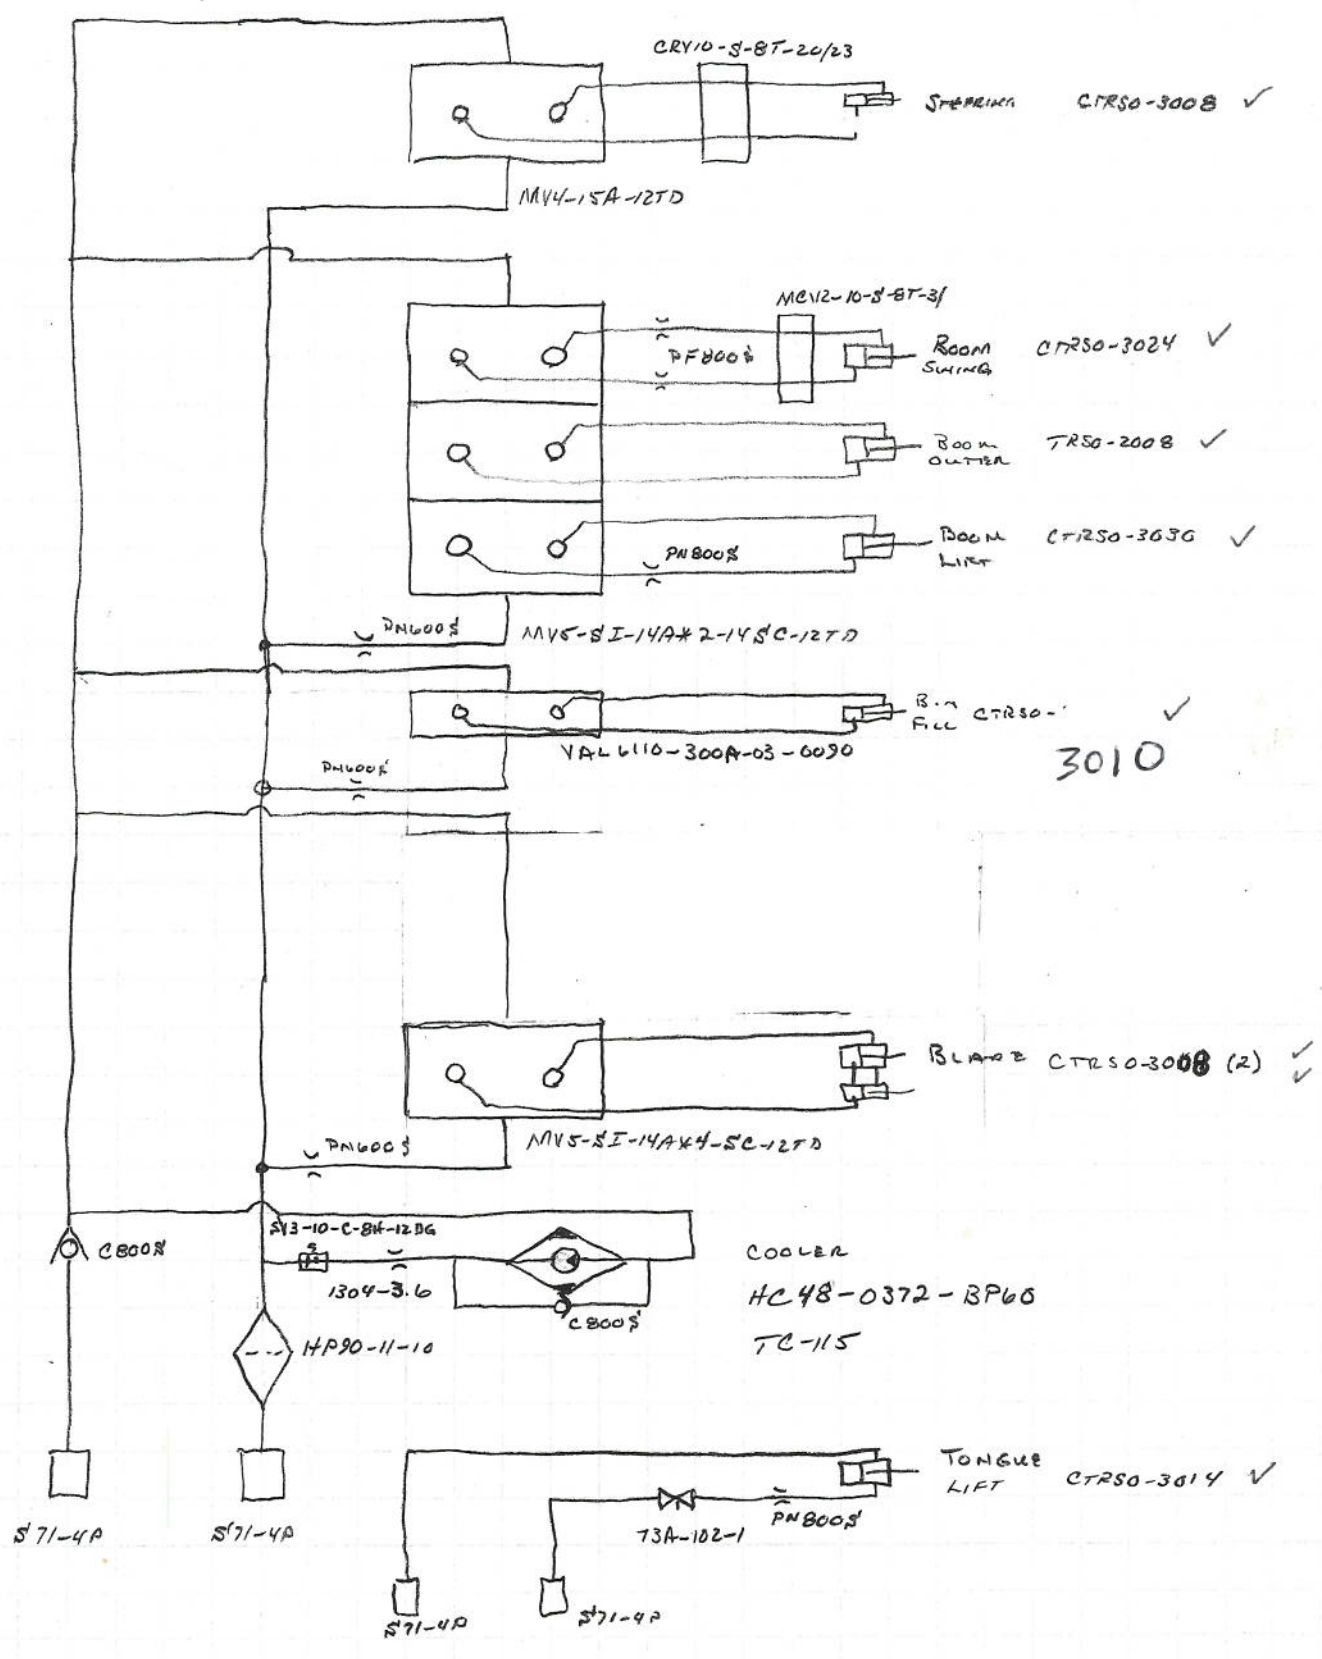 CRV10-S-8T-20/23
STEERING CTRSO-3008 ✓
MV4-15A-12TD
MCV12-10-S-8T-3/
BOOM SWING CTRSO-3024 ✓
PF800S
BOOM OUTER TRSO-2008 ✓
BOOM LIFT CTRSO-3030 ✓
PN800S
PN600S
MV5-SI-14A*2-14SC-12TD
BIN FILL CTRSO- ✓
3010
VAL6110-300A-03-0090
PN600S
BLADE CTRSO-3008 (2) ✓ ✓
MV5-SI-14A*4-SC-12TD
PN600S
SV3-10-C-8H-12DG
C800S
1304-3.6
COOLER
HC48-0372-BP60
TC-115
C800S
HP90-11-10
TONGUE LIFT CTRSO-3014 ✓
PN800S
73A-102-1
S71-4P
S71-4P
S71-4P
S71-4P